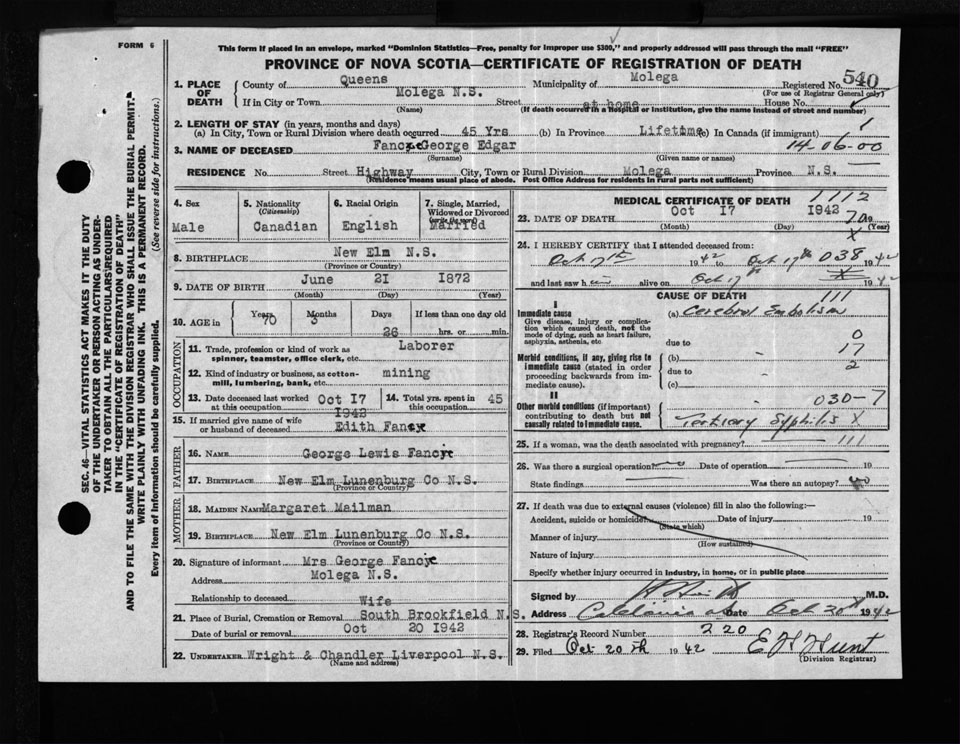 FORM 6
This form if placed in an envelope, marked "Dominion Statistics—Free, penalty for improper use $300," and properly addressed will pass through the mail "FREE"
PROVINCE OF NOVA SCOTIA—CERTIFICATE OF REGISTRATION OF DEATH
1. PLACE OF DEATH County of Queens Municipality of Molega Registered No. 540
(For use of Registrar General only)
If in City or Town Molega N.S. Street at home House No.
(Name) (If death occurred in a hospital or institution, give the name instead of street and number)
2. LENGTH OF STAY (in years, months and days)
(a) In City, Town or Rural Division where death occurred 45 Yrs (b) In Province Lifetime (c) In Canada (if immigrant) 1
3. NAME OF DECEASED Fancy George Edgar 14-06-00
(Surname) (Given name or names)
RESIDENCE No. Street Highway City, Town or Rural Division Molega Province N.S.
(Residence means usual place of abode. Post Office Address for residents in rural parts not sufficient)
4. Sex Male
5. Nationality (Citizenship) Canadian
6. Racial Origin English
7. Single, Married, Widowed or Divorced (write the word) Married
8. BIRTHPLACE New Elm N.S.
(Province or Country)
9. DATE OF BIRTH June 21 1872
(Month) (Day) (Year)
10. AGE in Years 70 Months 3 Days 26 If less than one day old hrs. or min.
OCCUPATION
11. Trade, profession or kind of work as spinner, teamster, office clerk, etc. Laborer
12. Kind of industry or business, as cotton-mill, lumbering, bank, etc. mining
13. Date deceased last worked at this occupation Oct 17 1942
14. Total yrs. spent in this occupation 45
15. If married give name of wife or husband of deceased Edith Fancy
FATHER
16. NAME George Lewis Fancy
17. BIRTHPLACE New Elm Lunenburg Co N.S.
(Province or Country)
MOTHER
18. MAIDEN NAME Margaret Mailman
19. BIRTHPLACE New Elm Lunenburg Co N.S.
(Province or Country)
20. Signature of informant Mrs George Fancy
Address Molega N.S.
Relationship to deceased Wife
21. Place of Burial, Cremation or Removal South Brookfield N.S.
Date of burial or removal Oct 20 1942
22. UNDERTAKER Wright & Chandler Liverpool N.S.
(Name and address)
MEDICAL CERTIFICATE OF DEATH 1112
23. DATE OF DEATH Oct 17 1942
(Month) (Day) (Year)
70
X
24. I HEREBY CERTIFY that I attended deceased from:
Oct 17th 1942 to Oct 17th 1942 038
and last saw him alive on Oct 17th 1942 X
CAUSE OF DEATH 111
I
Immediate cause
Give disease, injury or complication which caused death, not the mode of dying, such as heart failure, asphyxia, asthenia, etc.
(a) Cerebral Embolism
due to 0
Morbid conditions, if any, giving rise to immediate cause (stated in order proceeding backwards from immediate cause).
(b) 17
due to 2
(c)
II
Other morbid conditions (if important) contributing to death but not causally related to immediate cause.
030-7
Tertiary Syphilis X
25. If a woman, was the death associated with pregnancy? 111
26. Was there a surgical operation? no Date of operation 19
State findings Was there an autopsy? no
27. If death was due to external causes (violence) fill in also the following:—
Accident, suicide or homicide Date of injury 19
(State which)
Manner of injury
(How sustained)
Nature of injury
Specify whether injury occurred in industry, in home, or in public place
Signed by M.D.
Address Caledonia Date Oct 20 1942
28. Registrar's Record Number 220
29. Filed Oct 20th 1942 E H Hunt
(Division Registrar)
SEC. 46—VITAL STATISTICS ACT MAKES IT THE DUTY
OF THE UNDERTAKER OR PERSON ACTING AS UNDER-
TAKER TO OBTAIN ALL THE PARTICULARS REQUIRED
IN THE "CERTIFICATE OF REGISTRATION OF DEATH"
AND TO FILE THE SAME WITH THE DIVISION REGISTRAR WHO SHALL ISSUE THE BURIAL PERMIT.
WRITE PLAINLY WITH UNFADING INK. THIS IS A PERMANENT RECORD.
Every item of Information should be carefully supplied. (See reverse side for instructions.)